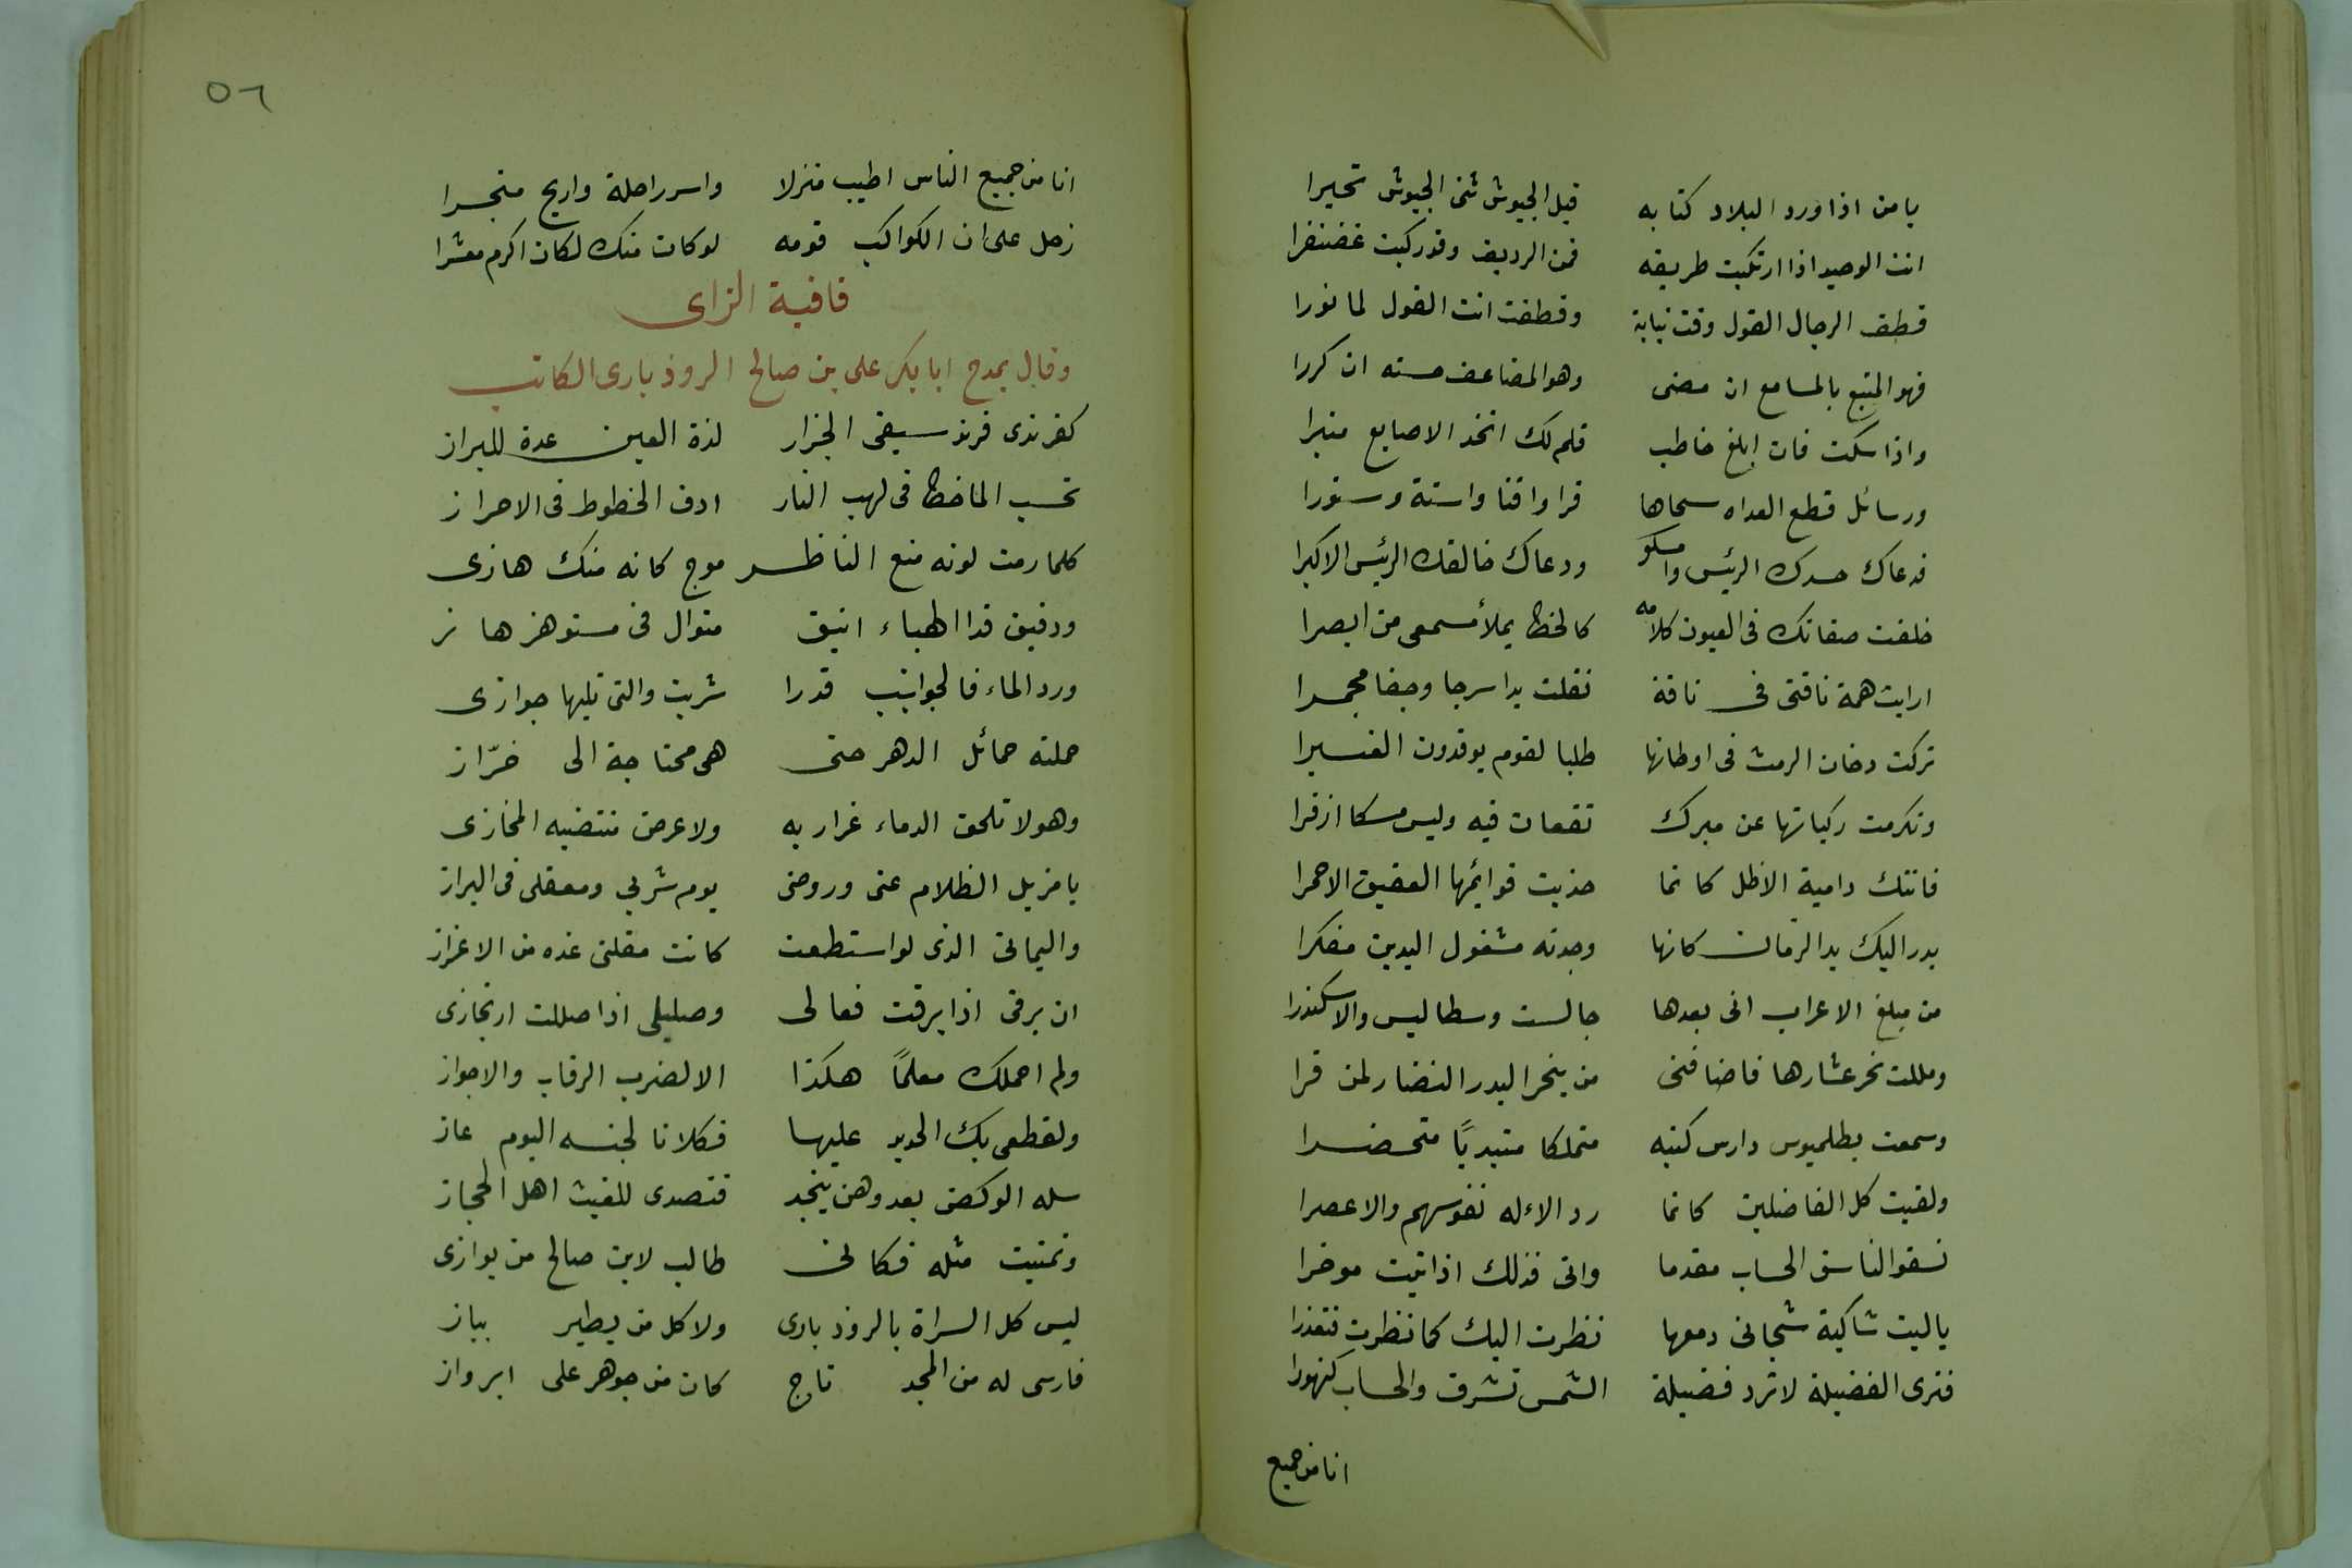 يا من اذا ورد البلاد كتابه قبل الجيوش ثنى الجيوش تحيرا
انت الوحيد اذا ارتكبت طريقه فمن الرديف وقد ركبت غضنفرا
قطف الرجال القول وقت نباته وقطفت انت القول لما نورا
فهو المتبع بالمسامع ان مضى وهو المضاعف حسنه ان كررا
واذا سكت فان ابلغ خاطب قلم لك اتخذ الاصابع منبرا
ورسائل قطع العداه سحاها فراوا قنا واسنة وسنورا
فدعاك حسدك الرئيس وامسكو ودعاك خالقك الرئيس الاكبرا
خلفت صفاتك فى العيون كلامه كالخط يملأ مسمعى من ابصرا
ارايت همة ناقتى فى ناقة نقلت يدا سرحا وخفا مجمرا
تركت دخان الرمث فى اوطانها طلبا لقوم يوقدون العنبرا
وتكرمت ركباتها عن مبرك تقعان فيه وليس مسكا ازفرا
فاتتك دامية الاظل كانما حذيت قوائمها العقيق الاحمرا
بدر اليك يد الزمان كانها وجدته مشغول اليدين مفكرا
من مبلغ الاعراب انى بعدها جالست وسطاليس والاسكندرا
ومللت نحر عشارها فاضافنى من ينحر البدر النضار لمن قرا
وسمعت بطلميوس دارس كتبه متملكا متبديًا متحضرا
ولقيت كل الفاضلين كانما رد الاءله نفوسهم والاعصرا
نسقوا لنا سق الحساب مقدما واتى فذلك اذ اتيت موخرا
يا ليت شاكية شجانى دمعها نظرت اليك كما نظرت فتعذرا
فترى الفضيلة لا ترد فضيلة الشمس تشرق والحساب كنهورا
انا من جميع
٥٦
انا من جميع الناس اطيب منزلا واسر راحلة واربح متجرا
زحل على ان الكواكب قومه لو كان منك لكان اكرم معشرا
قافية الزاى
وقال يمدح ابا بكر على بن صالح الروذبارى الكاتب
كفرندى فرند سيفى الجزار لذة العين عدة للبراز
تحسب الماخط فى لهب النار ادق الخطوط فى الاحراز
كلما رمت لونه منع الناظر موج كانه منك هازى
ودقيق قدا الهباء انيق متوال فى مستو هزهاز
ورد الماء فالجوانب قدرا شربت والتى تليها جوازى
حملته حمائل الدهر حتى هى محتاجة الى خرّاز
وهو لا تلحق الدماء غراريه ولا عرض منتضيه المخازى
يا مزيل الظلام عنى وروضى يوم شربى ومعقلى فى البراز
واليمانى الذى لو استطعت كانت مقلتى غده من الاغزاز
ان برقى اذا برقت فعالى وصليلى اذا صللت ارتجازى
ولم احملك معلمًا هكذا الا لضرب الرقاب والاجواز
ولقطعى بك الحديد عليها فكلانا لجنسه اليوم غاز
سله الركض بعد وهن بنجد فتصدى للغيث اهل الحجاز
وتمنيت مثله فكانى طالب لابن صالح من يوازى
ليس كل السراة بالروذبارى ولا كل من يطير بباز
فارسى له من المجد تاج كان من جوهر على ابرواز